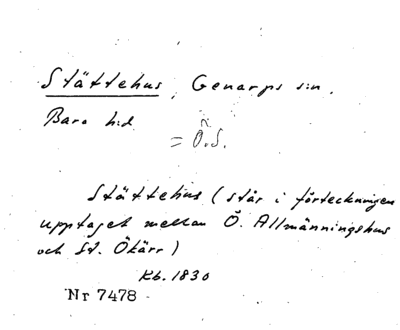 Stättehus, Genarps sn.
Bara hd
= Ö.S.
Stättehus (står i förteckningen
upptaget mellan Ö. Allmänningshus
och St. Ökärr)
Kb. 1830
Nr 7478